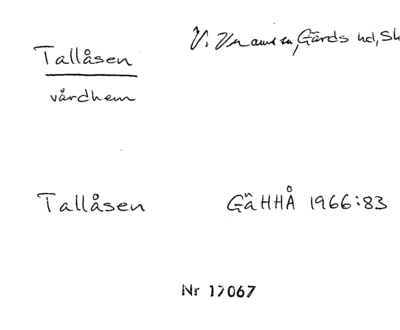 Tallåsen
V. Vram sn, Gärds hd, Sk
vårdhem
Tallåsen GäHHÅ 1966:83
Nr 17067